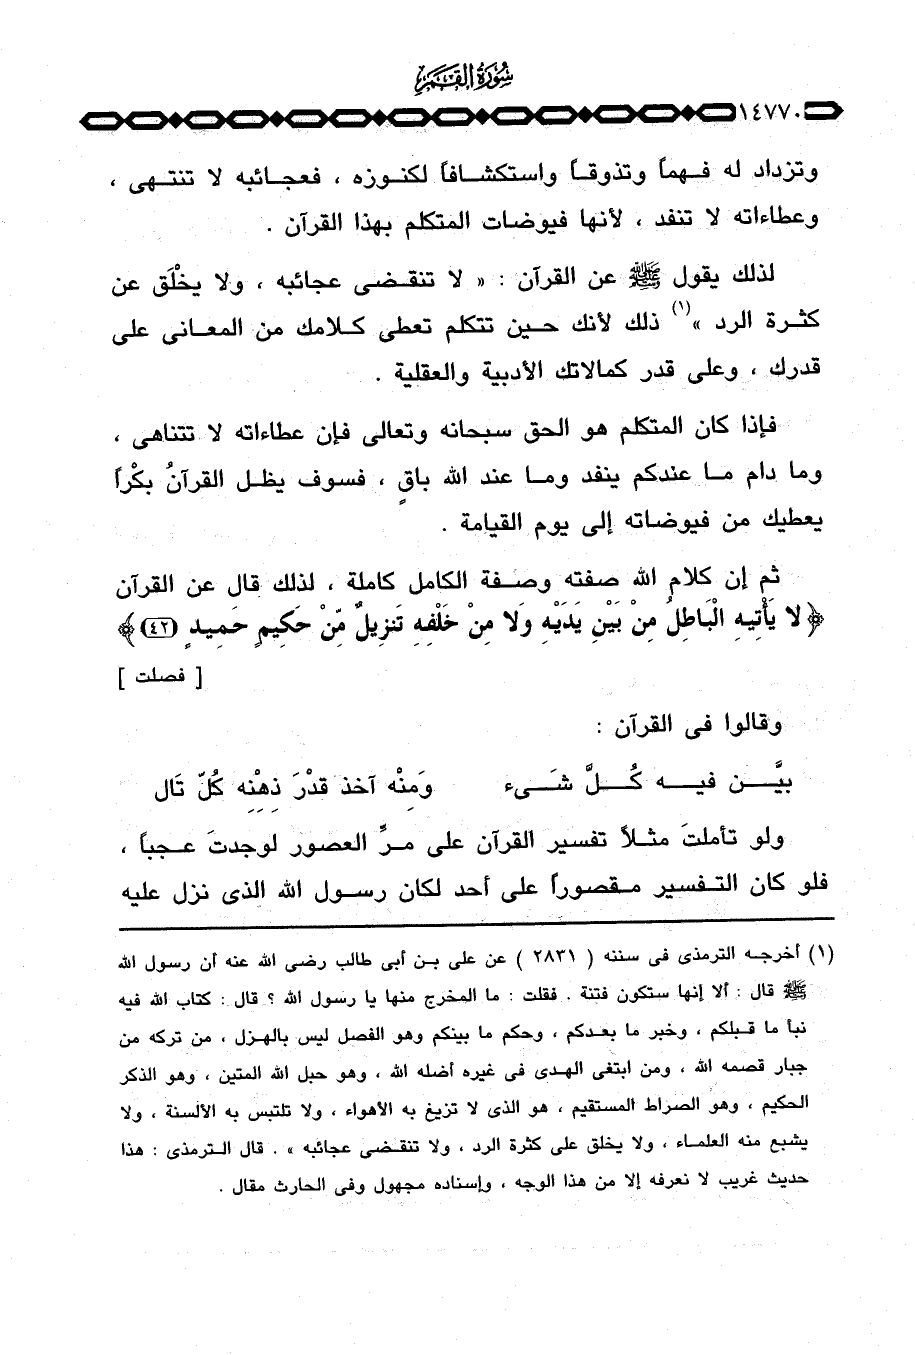 سُورَةُ القَمَرِ
١٤٧٧٠
وتزداد له فـهماً وتذوقـاً واستكشـافاً لكنـوزه ، فعجـائبه لا تنتـهى ،
وعطاءاته لا تنفد ، لأنها فيوضات المتكلم بهذا القرآن .
لذلك يقول ﷺ عن القرآن : « لا تنقـضى عجائبه ، ولا يخْلَق عن
كثـرة الرد »(١) ذلك لأنك حـين تتكلم تعطى كـلامك من المعـانى على
قدرك ، وعلى قدر كمالاتك الأدبية والعقلية .
فإذا كان المتكلم هو الحق سبحانه وتعالى فإن عطاءاته لا تتناهى ،
وما دام مـا عندكم ينفد ومـا عند الله باقٍ ، فسوف يظـل القرآنُ بكْراً
يعطيك من فيوضاته إلى يوم القيامة .
ثم إن كلام الله صفته وصـفة الكامل كاملة ، لذلك قال عن القرآن
﴿ لا يَأْتِيهِ الْبَاطِلُ مِنْ بَيْنِ يَدَيْهِ وَلا مِنْ خَلْفِهِ تَنزِيلٌ مِّنْ حَكِيمٍ حَمِيدٍ (٤٢) ﴾
[ فصلت ]
وقالوا فى القرآن :
بيَّـــن فيـــه كُـــلَّ شَـــىء وَمِنْه آخذ قدْرَ ذِهْنِهِ كُلّ تَال
ولو تأملتَ مثـلاً تفسير القرآن على مـرِّ العصور لوجدتَ عـجباً ،
فلو كان التـفسير مـقصوراً على أحد لكان رسـول الله الذى نزل عليه
(١) أخرجـه الترمذى فى سننه ( ٢٨٣١ ) عن على بـن أبى طالب رضى الله عنه أن رسول الله
ﷺ قال : ألا إنها ستكون فتنة . فقلت : ما المخرج منها يا رسول الله ؟ قال : كتاب الله فيه
نبأ ما قـبلكم ، وخبر ما بعـدكم ، وحكم ما بينكم وهو الفصل ليس بالهـزل ، من تركه من
جبار قصمه الله ، ومن ابتغى الهدى فى غيره أضله الله ، وهو حبل الله المتين ، وهو الذكر
الحكيم ، وهو الصراط المستقيم ، هو الذى لا تزيغ به الأهواء ، ولا تلتبس به الألسنة ، ولا
يشبع منه العلمـاء ، ولا يخلق على كثرة الرد ، ولا تنقـضى عجائبه » . قال الـترمذى : هذا
حديث غريب لا نعرفه إلا من هذا الوجه ، وإسناده مجهول وفى الحارث مقال .